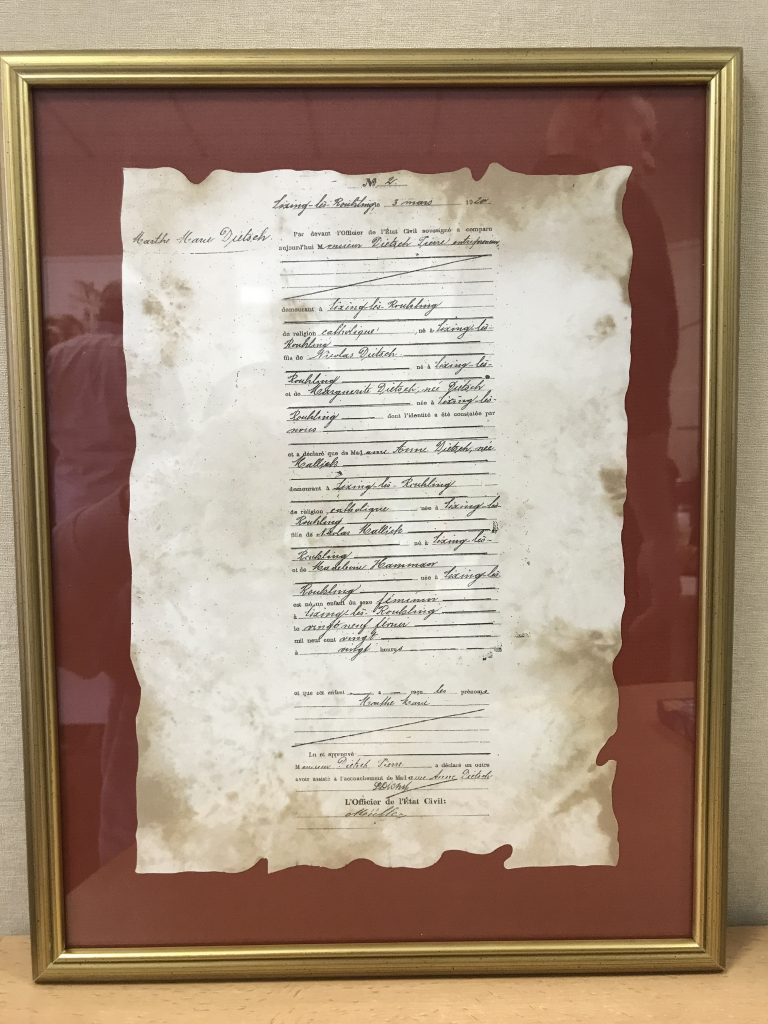 No. 2
Lixing-lès-Rouhling, le 3 mars 1920
Marthe Marie Dietsch.
Par devant l'Officier de l'État Civil soussigné a comparu
aujourd'hui Monsieur Dietsch Pierre entrepreneur
demeurant à Lixing-lès-Rouhling
de religion catholique, né à Lixing-lès-
Rouhling
fils de Nicolas Dietsch
né à Lixing-lès-
Rouhling
et de Marguerite Dietsch, née Dietsch
née à Lixing-lès-
Rouhling dont l'identité a été constatée par
nous
et a déclaré que de Madame Anne Dietsch, née
Mallick
demeurant à Lixing-lès-Rouhling
de religion catholique née à Lixing-lès-
Rouhling
fille de Nicolas Mallick
né à Lixing-lès-
Rouhling
et de Madeleine
née à Lixing-lès
Rouhling
est né un enfant du sexe féminin
à Lixing-lès-Rouhling
le vingt neuf février
mil neuf cent vingt
à vingt heures
et que cet enfant a reçu les prénoms
Marthe Marie
Lu et approuvé
Monsieur Dietsch Pierre a déclaré en outre
avoir assisté à l'accouchement de Madame Anne Dietsch
L'Officier de l'État Civil: